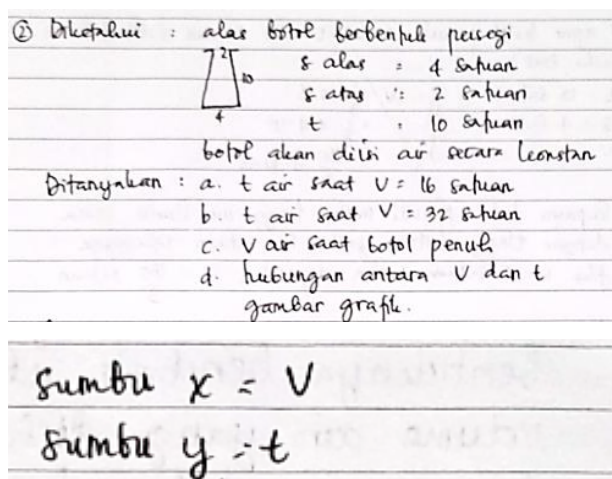 ② Diketahui : alas botol berbentuk persegi
2 s alas = 4 satuan
10 s atas : 2 satuan
4 t : 10 satuan
botol akan diisi air secara konstan
Ditanyakan : a. t air saat V = 16 satuan
b. t air saat V = 32 satuan
c. V air saat botol penuh
d. hubungan antara V dan t
gambar grafik.
Sumbu x = V
Sumbu y = t